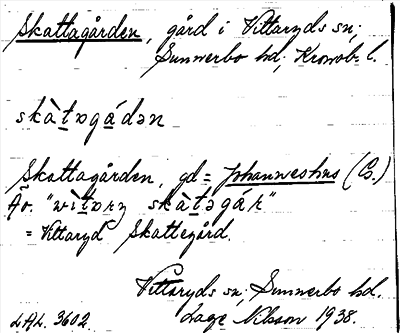 Skattagården, gård i Vittaryds sn;
Sunnerbo hd; Kronob. l.
skàt̲ɒgá̲dən
Skattagården, gd = Johanneshus (Cs.)
Äv. "wìt̲ɒrʒ skàt̲əgá̲r"
= Vittaryd Skattegård.
Vittaryds sn; Sunnerbo hd.
LAL. 3602. Lage Nilsson 1938.